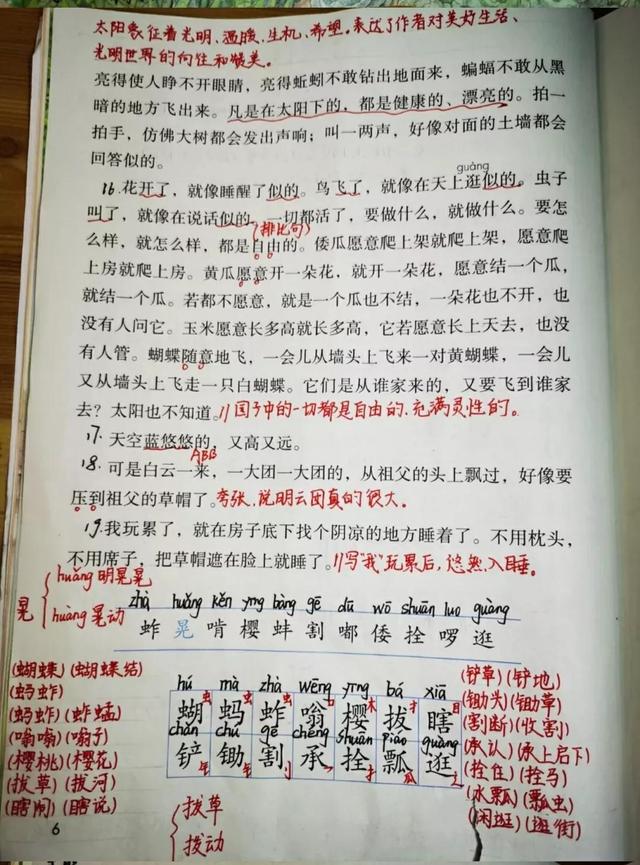 太阳象征着光明、温暖、生机、希望。表达了作者对美好生活、
光明世界的向往和赞美。
亮得使人睁不开眼睛，亮得蚯蚓不敢钻出地面来，蝙蝠不敢从黑
暗的地方飞出来。凡是在太阳下的，都是健康的、漂亮的。拍一
拍手，仿佛大树都会发出声响；叫一两声，好像对面的土墙都会
回答似的。
guàng
16.花开了，就像睡醒了似的。鸟飞了，就像在天上逛似的。虫子
叫了，就像在说话似的。一切都活了，要做什么，就做什么。要怎
(排比句)
么样，就怎么样，都是自由的。倭瓜愿意爬上架就爬上架，愿意爬
上房就爬上房。黄瓜愿意开一朵花，就开一朵花，愿意结一个瓜，
就结一个瓜。若都不愿意，就是一个瓜也不结，一朵花也不开，也
没有人问它。玉米愿意长多高就长多高，它若愿意长上天去，也没
有人管。蝴蝶随意地飞，一会儿从墙头上飞来一对黄蝴蝶，一会儿
又从墙头上飞走一只白蝴蝶。它们是从谁家来的，又要飞到谁家
去？太阳也不知道。//园子中的一切都是自由的、充满灵性的。
17.天空蓝悠悠的，又高又远。
ABB
18.可是白云一来，一大团一大团的，从祖父的头上飘过，好像要
压到祖父的草帽了。夸张，说明云团真的很大。
19.我玩累了，就在房子底下找个阴凉的地方睡着了。不用枕头，
不用席子，把草帽遮在脸上就睡了。//写“我”玩累后，悠然入睡。
晃
huǎng 明晃晃
huàng 晃动
zhà huǎng kěn yīng bàng gē dū wō shuān luo guàng
蚱 晃 啃 樱 蚌 割 嘟 倭 拴 啰 逛
hú mà zhà wēng yīng bá xiā
蝴 蚂 蚱 嗡 樱 拔 瞎
chǎn chú gē chéng shuān piáo guàng
铲 锄 割 承 拴 瓢 逛
(蝴蝶) (蝴蝶结)
(蚂蚱)
(蚂蚱) (蚱蜢)
(嗡嗡) (嗡子)
(樱桃) (樱花)
(拔草) (拔河)
(瞎闹) (瞎说)
(铲草) (铲地)
(锄头) (锄草)
(割断) (收割)
(承认) (承上启下)
(拴住) (拴马)
(水瓢) (瓢虫)
(闲逛) (逛街)
拔草
拨动
6